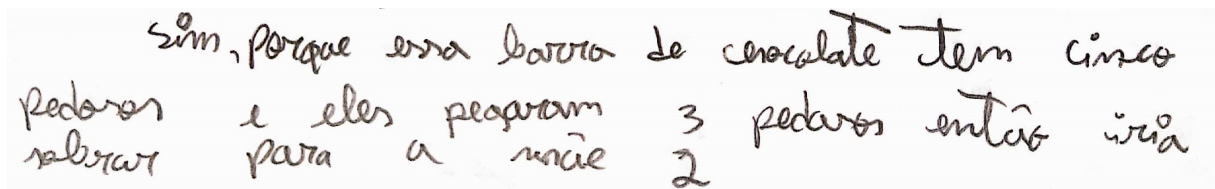 Sim, porque essa barra de chocolate tem cinco
pedasos e eles pegaram 3 pedasos então iria
sobrar para a mãe 2